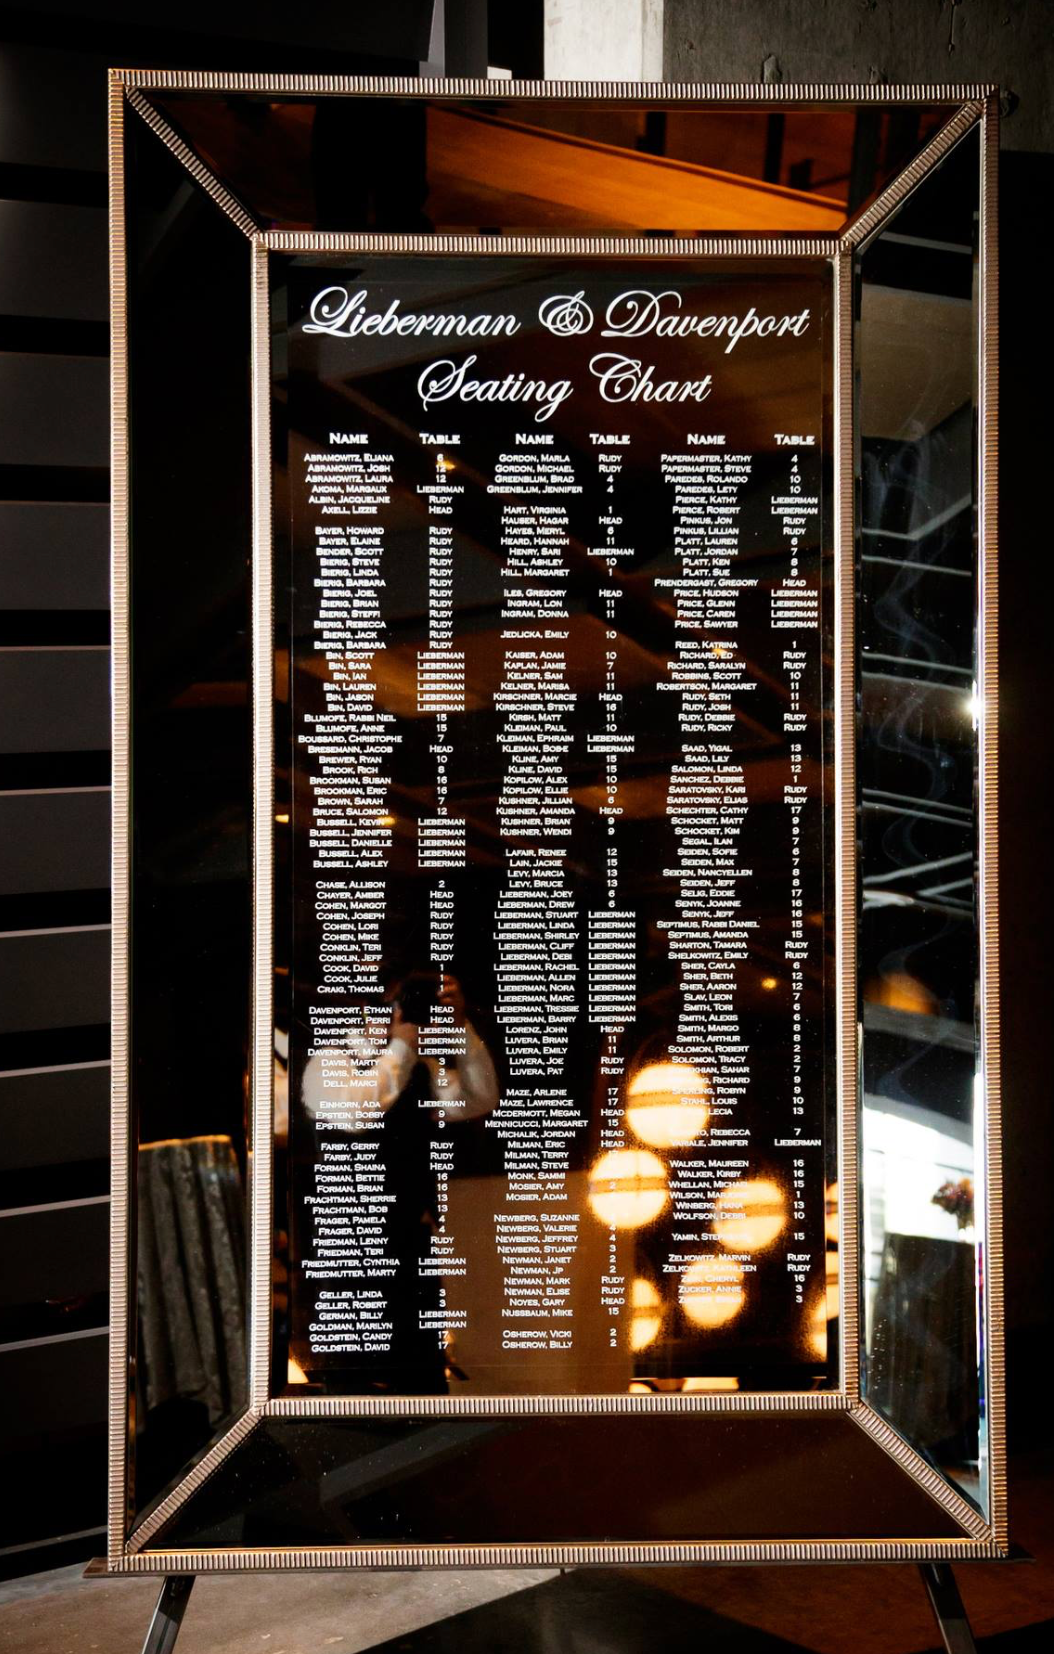 Lieberman & Davenport
Seating Chart
NAME TABLE
ABRAMOWITZ, ELIANA 6
ABRAMOWITZ, JOSH 12
ABRAMOWITZ, LAURA 12
AKOMA, MARGAUX LIEBERMAN
ALBIN, JACQUELINE RUDY
AXELL, LIZZIE HEAD
BAYER, HOWARD RUDY
BAYER, ELAINE RUDY
BENDER, SCOTT RUDY
BIERIG, STEVE RUDY
BIERIG, LINDA RUDY
BIERIG, BARBARA RUDY
BIERIG, JOEL RUDY
BIERIG, BRIAN RUDY
BIERIG, STEFFI RUDY
BIERIG, REBECCA RUDY
BIERIG, JACK RUDY
BIERIG, BARBARA RUDY
BIN, SCOTT LIEBERMAN
BIN, SARA LIEBERMAN
BIN, IAN LIEBERMAN
BIN, LAUREN LIEBERMAN
BIN, JASON LIEBERMAN
BIN, DAVID LIEBERMAN
BLUMOFE, RABBI NEIL 15
BLUMOFE, ANNE 15
BOUSSARD, CHRISTOPHE 7
BRESEMANN, JACOB HEAD
BREWER, RYAN 10
BROOK, RICH 8
BROOKMAN, SUSAN 16
BROOKMAN, ERIC 16
BROWN, SARAH 7
BRUCE, SALOMON 12
BUSSELL, KEVIN LIEBERMAN
BUSSELL, JENNIFER LIEBERMAN
BUSSELL, DANIELLE LIEBERMAN
BUSSELL, ALEX LIEBERMAN
BUSSELL, ASHLEY LIEBERMAN
CHASE, ALLISON 2
CHAYER, AMBER HEAD
COHEN, MARGOT HEAD
COHEN, JOSEPH RUDY
COHEN, LORI RUDY
COHEN, MIKE RUDY
CONKLIN, TERI RUDY
CONKLIN, JEFF RUDY
COOK, DAVID 1
COOK, JULIE 1
CRAIG, THOMAS 1
DAVENPORT, ETHAN HEAD
DAVENPORT, PERRI HEAD
DAVENPORT, KEN LIEBERMAN
DAVENPORT, TOM LIEBERMAN
DAVENPORT, MAURA LIEBERMAN
DAVIS, MARTY 3
DAVIS, ROBIN 3
DELL, MARCI 12
EINHORN, ADA LIEBERMAN
EPSTEIN, BOBBY 9
EPSTEIN, SUSAN 9
FARBY, GERRY RUDY
FARBY, JUDY RUDY
FORMAN, SHAINA HEAD
FORMAN, BETTIE 16
FORMAN, BRIAN 16
FRACHTMAN, SHERRIE 13
FRACHTMAN, BOB 13
FRAGER, PAMELA 4
FRAGER, DAVID 4
FRIEDMAN, LENNY RUDY
FRIEDMAN, TERI RUDY
FRIEDMUTTER, CYNTHIA LIEBERMAN
FRIEDMUTTER, MARTY LIEBERMAN
GELLER, LINDA 3
GELLER, ROBERT 3
GERMAN, BILLY LIEBERMAN
GOLDMAN, MARILYN LIEBERMAN
GOLDSTEIN, CANDY 17
GOLDSTEIN, DAVID 17
NAME TABLE
GORDON, MARLA RUDY
GORDON, MICHAEL RUDY
GREENBLUM, BRAD 4
GREENBLUM, JENNIFER 4
HART, VIRGINIA 1
HAUSER, HAGAR HEAD
HAYES, MERYL 6
HEARD, HANNAH 11
HENRY, SARI LIEBERMAN
HILL, ASHLEY 10
HILL, MARGARET 1
ILES, GREGORY HEAD
INGRAM, LON 11
INGRAM, DONNA 11
JEDLICKA, EMILY 10
KAISER, ADAM 10
KAPLAN, JAMIE 7
KELNER, SAM 11
KELNER, MARISA 11
KIRSCHNER, MARCIE HEAD
KIRSCHNER, STEVE 16
KIRSH, MATT 11
KLEIMAN, PAUL 10
KLEIMAN, EPHRAIM LIEBERMAN
KLEIMAN, BOBIE LIEBERMAN
KLINE, AMY 15
KLINE, DAVID 15
KOPILOW, ALEX 10
KOPILOW, ELLIE 10
KUSHNER, JILLIAN 6
KUSHNER, AMANDA HEAD
KUSHNER, BRIAN 9
KUSHNER, WENDI 9
LAFAIR, RENEE 12
LAIN, JACKIE 15
LEVY, MARCIA 13
LEVY, BRUCE 13
LIEBERMAN, JOEY 6
LIEBERMAN, DREW 6
LIEBERMAN, STUART LIEBERMAN
LIEBERMAN, LINDA LIEBERMAN
LIEBERMAN, SHIRLEY LIEBERMAN
LIEBERMAN, CLIFF LIEBERMAN
LIEBERMAN, DEBI LIEBERMAN
LIEBERMAN, RACHEL LIEBERMAN
LIEBERMAN, ALLEN LIEBERMAN
LIEBERMAN, NORA LIEBERMAN
LIEBERMAN, MARC LIEBERMAN
LIEBERMAN, TRESSIE LIEBERMAN
LIEBERMAN, BARRY LIEBERMAN
LORENZ, JOHN HEAD
LUVERA, BRIAN 11
LUVERA, EMILY 11
LUVERA, JOE RUDY
LUVERA, PAT RUDY
MAZE, ARLENE 17
MAZE, LAWRENCE 17
MCDERMOTT, MEGAN HEAD
MENNICUCCI, MARGARET 15
MICHALIK, JORDAN HEAD
MILMAN, ERIC HEAD
MILMAN, TERRY
MILMAN, STEVE
MONK, SAMMI
MOSIER, AMY 2
MOSIER, ADAM
NEWBERG, SUZANNE
NEWBERG, VALERIE 4
NEWBERG, JEFFREY 4
NEWBERG, STUART 3
NEWMAN, JANET 2
NEWMAN, JP 2
NEWMAN, MARK RUDY
NEWMAN, ELISE RUDY
NOYES, GARY HEAD
NUSSBAUM, MIKE 15
OSHEROW, VICKI 2
OSHEROW, BILLY 2
NAME TABLE
PAPERMASTER, KATHY 4
PAPERMASTER, STEVE 4
PAREDES, ROLANDO 10
PAREDES, LETY 10
PIERCE, KATHY LIEBERMAN
PIERCE, ROBERT LIEBERMAN
PINKUS, JON RUDY
PINKUS, LILLIAN RUDY
PLATT, LAUREN 6
PLATT, JORDAN 7
PLATT, KEN 8
PLATT, SUE 8
PRENDERGAST, GREGORY HEAD
PRICE, HUDSON LIEBERMAN
PRICE, GLENN LIEBERMAN
PRICE, CAREN LIEBERMAN
PRICE, SAWYER LIEBERMAN
REED, KATRINA 1
RICHARD, ED RUDY
RICHARD, SARALYN RUDY
ROBBINS, SCOTT 10
ROBERTSON, MARGARET 11
RUDY, SETH 11
RUDY, JOSH 11
RUDY, DEBBIE RUDY
RUDY, RICKY RUDY
SAAD, YIGAL 13
SAAD, LILY 13
SALOMON, LINDA 12
SANCHEZ, DEBBIE 1
SARATOVSKY, KARI RUDY
SARATOVSKY, ELIAS RUDY
SCHECHTER, CATHY 17
SCHOCKET, MATT 9
SCHOCKET, KIM 9
SEGAL, ILAN 7
SEIDEN, SOFIE 6
SEIDEN, MAX 7
SEIDEN, NANCYELLEN 8
SEIDEN, JEFF 8
SELIG, EDDIE 17
SENYK, JOANNE 16
SENYK, JEFF 16
SEPTIMUS, RABBI DANIEL 15
SEPTIMUS, AMANDA 15
SHARTON, TAMARA RUDY
SHELKOWITZ, EMILY RUDY
SHER, CAYLA 6
SHER, BETH 12
SHER, AARON 12
SLAV, LEON 7
SMITH, TORI 6
SMITH, ALEXIS 6
SMITH, MARGO 8
SMITH, ARTHUR 8
SOLOMON, ROBERT 2
SOLOMON, TRACY 2
SAHAR 7
RICHARD 9
ROBYN 9
STAHL, LOUIS 10
LECIA 13
REBECCA 7
JENNIFER LIEBERMAN
WALKER, MAUREEN 16
WALKER, KIRBY 16
WHELLAN, MICHAEL 15
WILSON, 1
WINBERG, 13
WOLFSON, DEBBI 10
YAMIN, 15
ZELKOWITZ, MARVIN RUDY
RUDY
CHERYL 16
ZUCKER, ANNIE 3
3